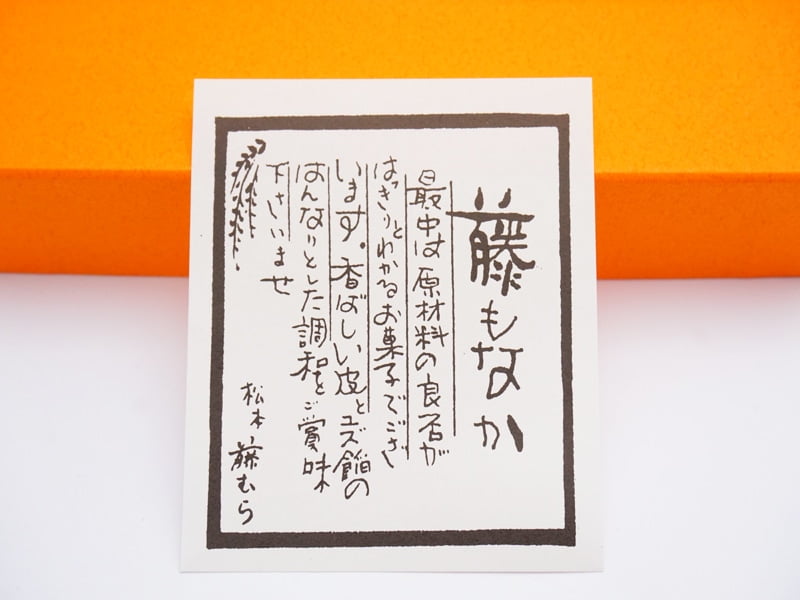 藤もなか
最中は原材料の良否が
はっきりとわかるお菓子でござ
います。香ばしい皮とユズ餡の
はんなりとした調和をご賞味
下さいませ
松本、藤むら